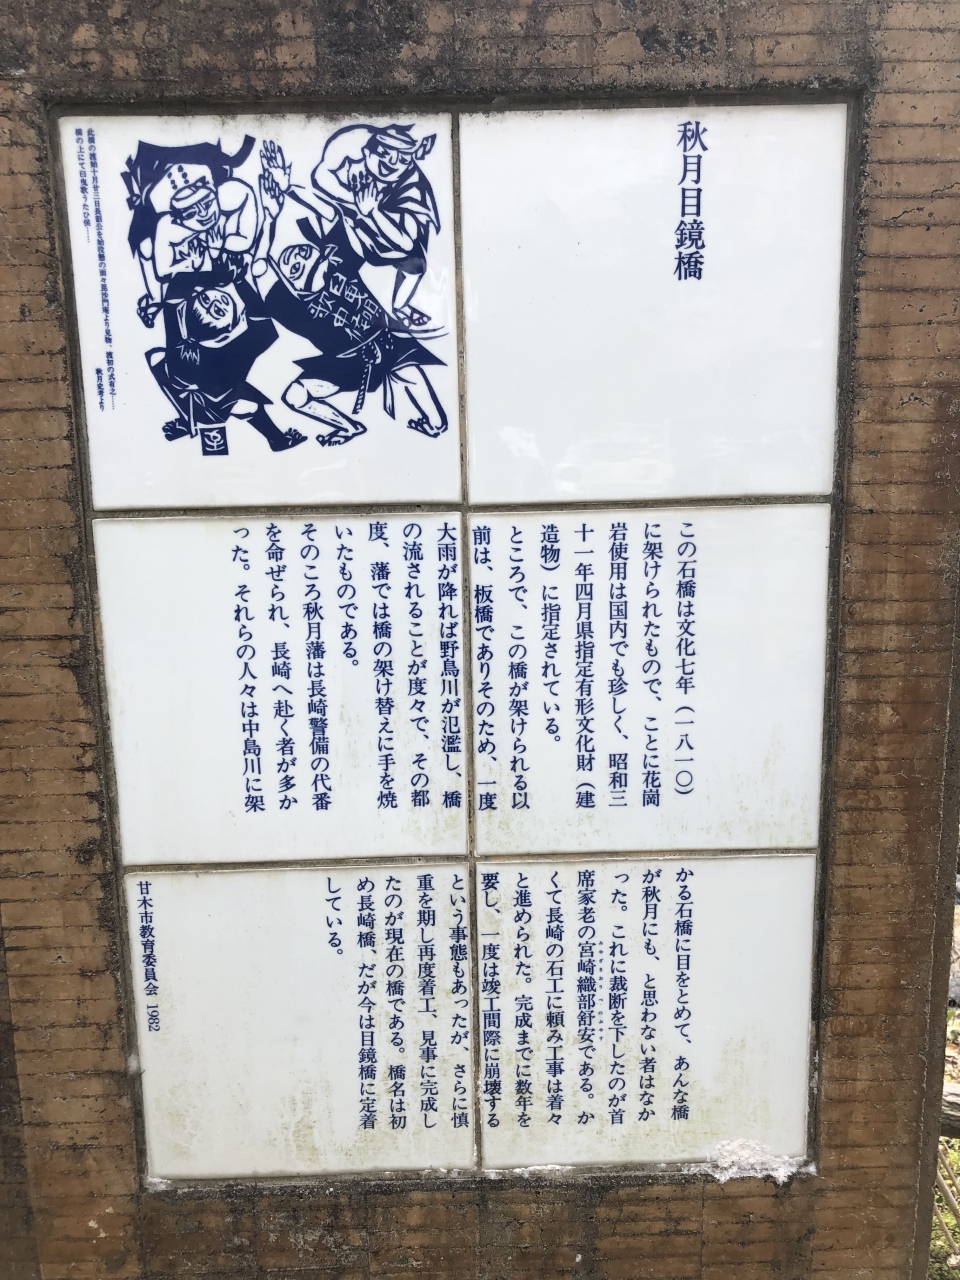 秋月目鏡橋
此橋の渡始十月廿三日長韶公を始役懸の面々毘沙門庵より見物、渡初の式有之……
橋の上にて臼曳歌うたひ候……
秋月史考より
この石橋は文化七年（一八一〇）
に架けられたもので、ことに花崗
岩使用は国内でも珍しく、昭和三
十一年四月県指定有形文化財（建
造物）に指定されている。
ところで、この橋が架けられる以
前は、板橋でありそのため、一度
大雨が降れば野鳥川が氾濫し、橋
の流されることが度々で、その都
度、藩では橋の架け替えに手を焼
いたものである。
そのころ秋月藩は長崎警備の代番
を命ぜられ、長崎へ赴く者が多か
った。それらの人々は中島川に架
かる石橋に目をとめて、あんな橋
が秋月にも、と思わない者はなか
った。これに裁断を下したのが首
席家老の宮崎織部舒安である。か
くて長崎の石工に頼み工事は着々
と進められた。完成までに数年を
要し、一度は竣工間際に崩壊する
という事態もあったが、さらに慎
重を期し再度着工、見事に完成し
たのが現在の橋である。橋名は初
め長崎橋、だが今は目鏡橋に定着
している。
甘木市教育委員会 1982